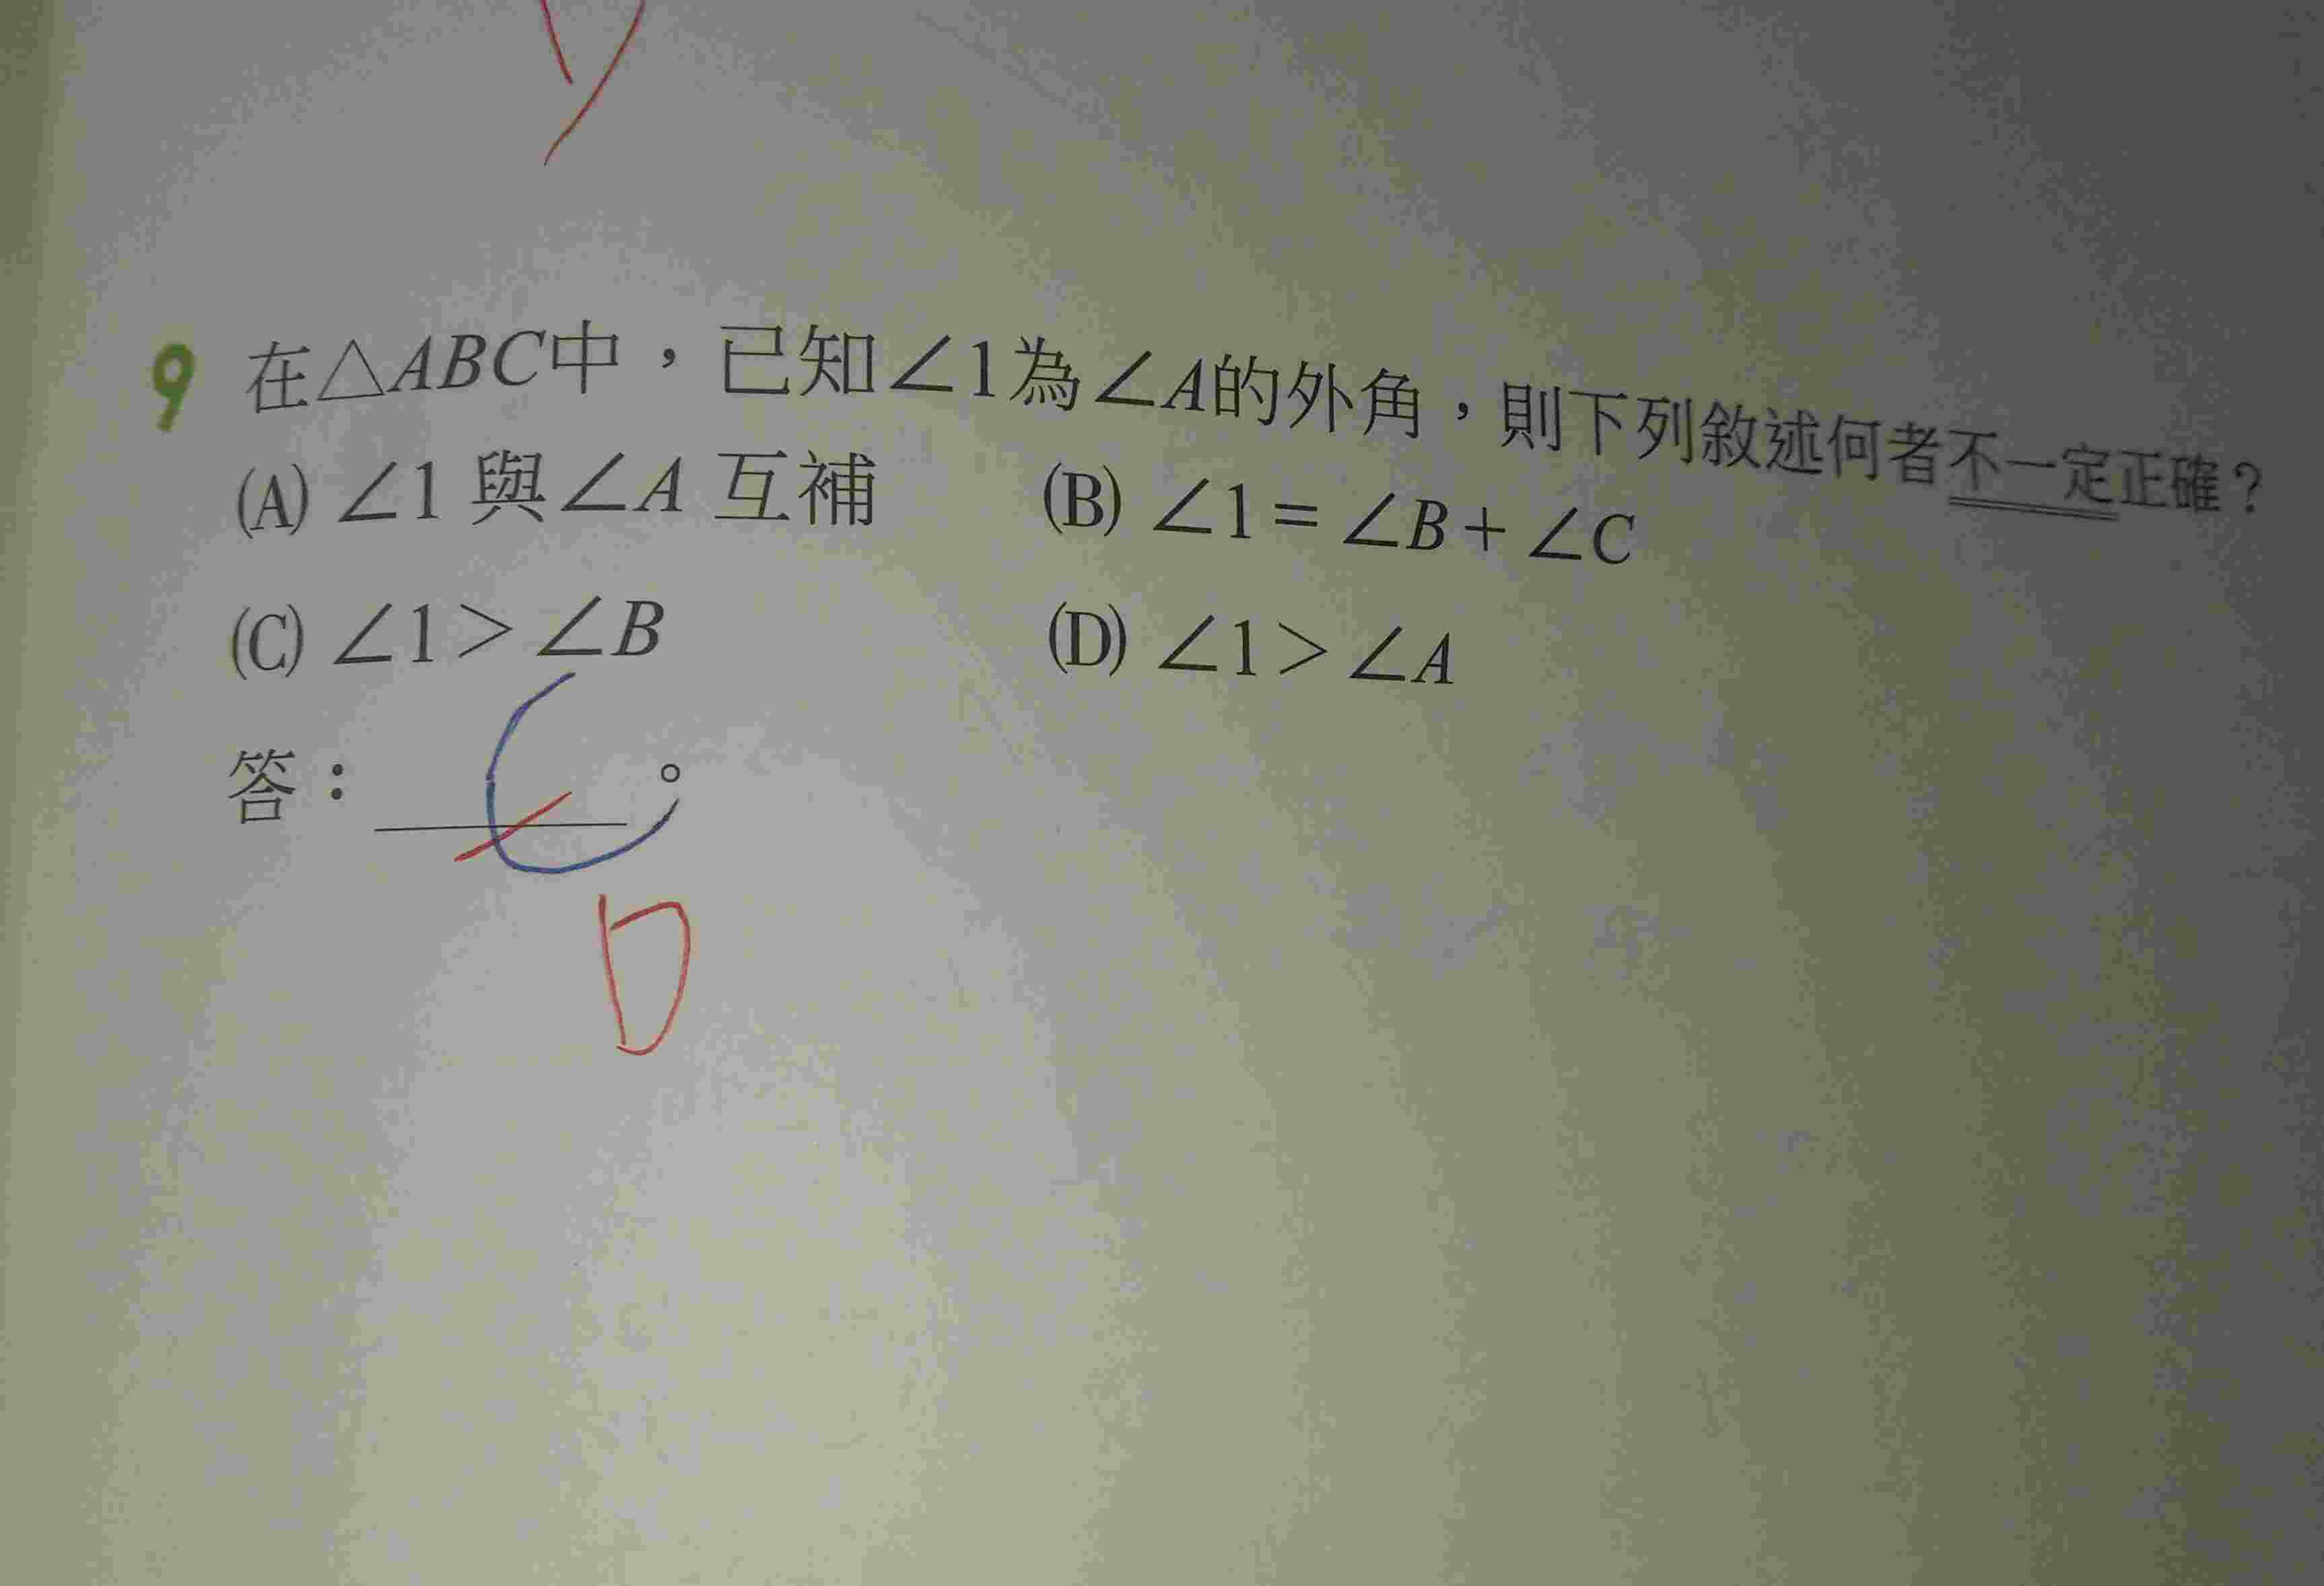 9 在△ABC中，已知∠1為∠A的外角，則下列敘述何者不一定正確？
(A) ∠1 與∠A 互補 (B) ∠1 = ∠B + ∠C
(C) ∠1 > ∠B (D) ∠1 > ∠A
答：C。
D